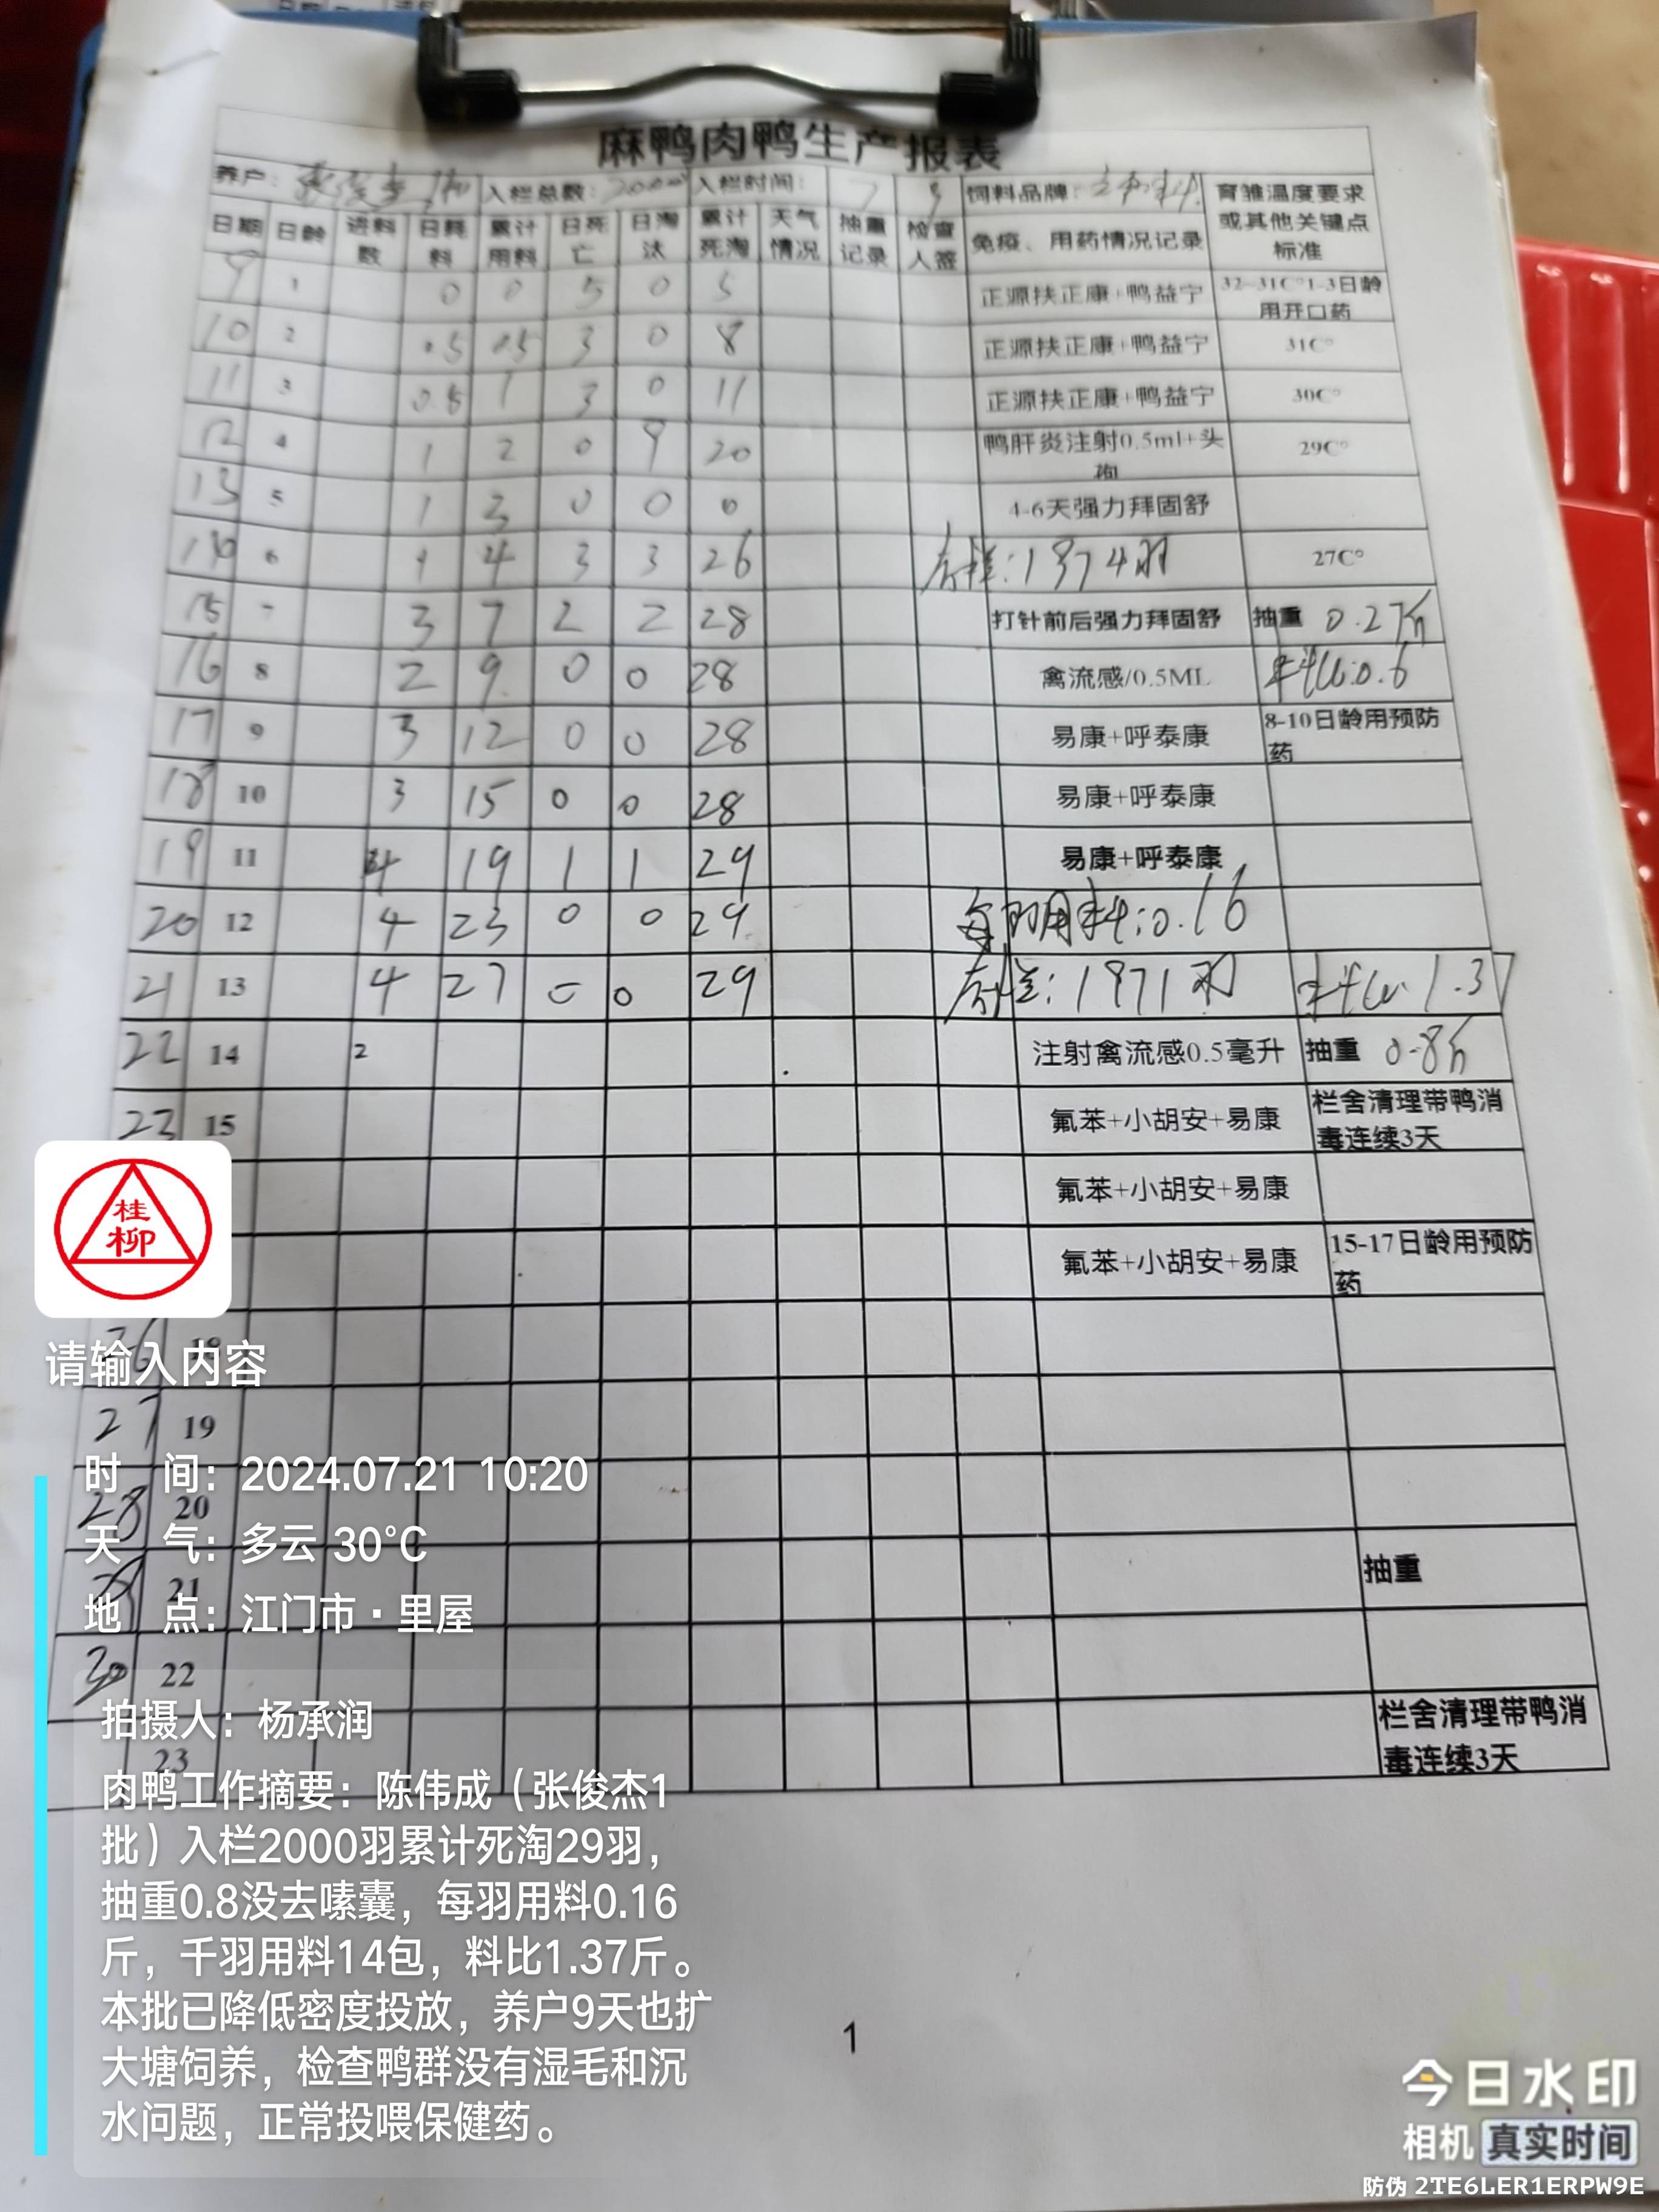 麻鸭肉鸭生产报表
养户: 入栏总数: 2000 入栏时间: 7 饲料品牌: 育雏温度要求或其他关键点标准
日期 日龄 进料数 日耗料 累计用料 日死亡 日淘汰 累计死淘 天气情况 抽重记录 检查人签 免疫、用药情况记录
9 1 0 0 5 0 5 正源扶正康+鸭益宁 32-31C°1-3日龄用开口药
10 2 0.5 0.5 3 0 8 正源扶正康+鸭益宁 31C°
11 3 0.5 1 3 0 11 正源扶正康+鸭益宁 30C°
12 4 1 2 0 9 20 鸭肝炎注射0.5ml+头孢
29C°
13 5 1 3 0 0 0 4-6天强力拜固舒
14 6 1 4 3 3 26 存栏:1974羽 27C°
15 7 3 7 2 2 28 打针前后强力拜固舒 抽重 0.27斤
16 8 2 9 0 0 28 禽流感/0.5ML 料比:0.6
17 9 3 12 0 0 28 易康+呼泰康 8-10日龄用预防药
18 10 3 15 0 0 28 易康+呼泰康
19 11 4 19 1 1 29 易康+呼泰康
20 12 4 23 0 0 29 每羽用料:0.16
21 13 4 27 0 0 29 存栏:1971羽 料比 1.37
22 14 2 注射禽流感0.5毫升 抽重 0.8斤
23 15 氟苯+小胡安+易康 栏舍清理带鸭消毒连续3天
氟苯+小胡安+易康
氟苯+小胡安+易康 15-17日龄用预防药
26 18
27 19
28 20
29 21 抽重
30 22
23 栏舍清理带鸭消毒连续3天
1
桂柳
请输入内容
时 间：2024.07.21 10:20
天 气：多云 30°C
地 点：江门市·里屋
拍摄人：杨承润
肉鸭工作摘要：陈伟成（张俊杰1
批）入栏2000羽累计死淘29羽，
抽重0.8没去嗉囊，每羽用料0.16
斤，千羽用料14包，料比1.37斤。
本批已降低密度投放，养户9天也扩
大塘饲养，检查鸭群没有湿毛和沉
水问题，正常投喂保健药。
今日水印
相机 真实时间
防伪 2TE6LER1ERPW9E